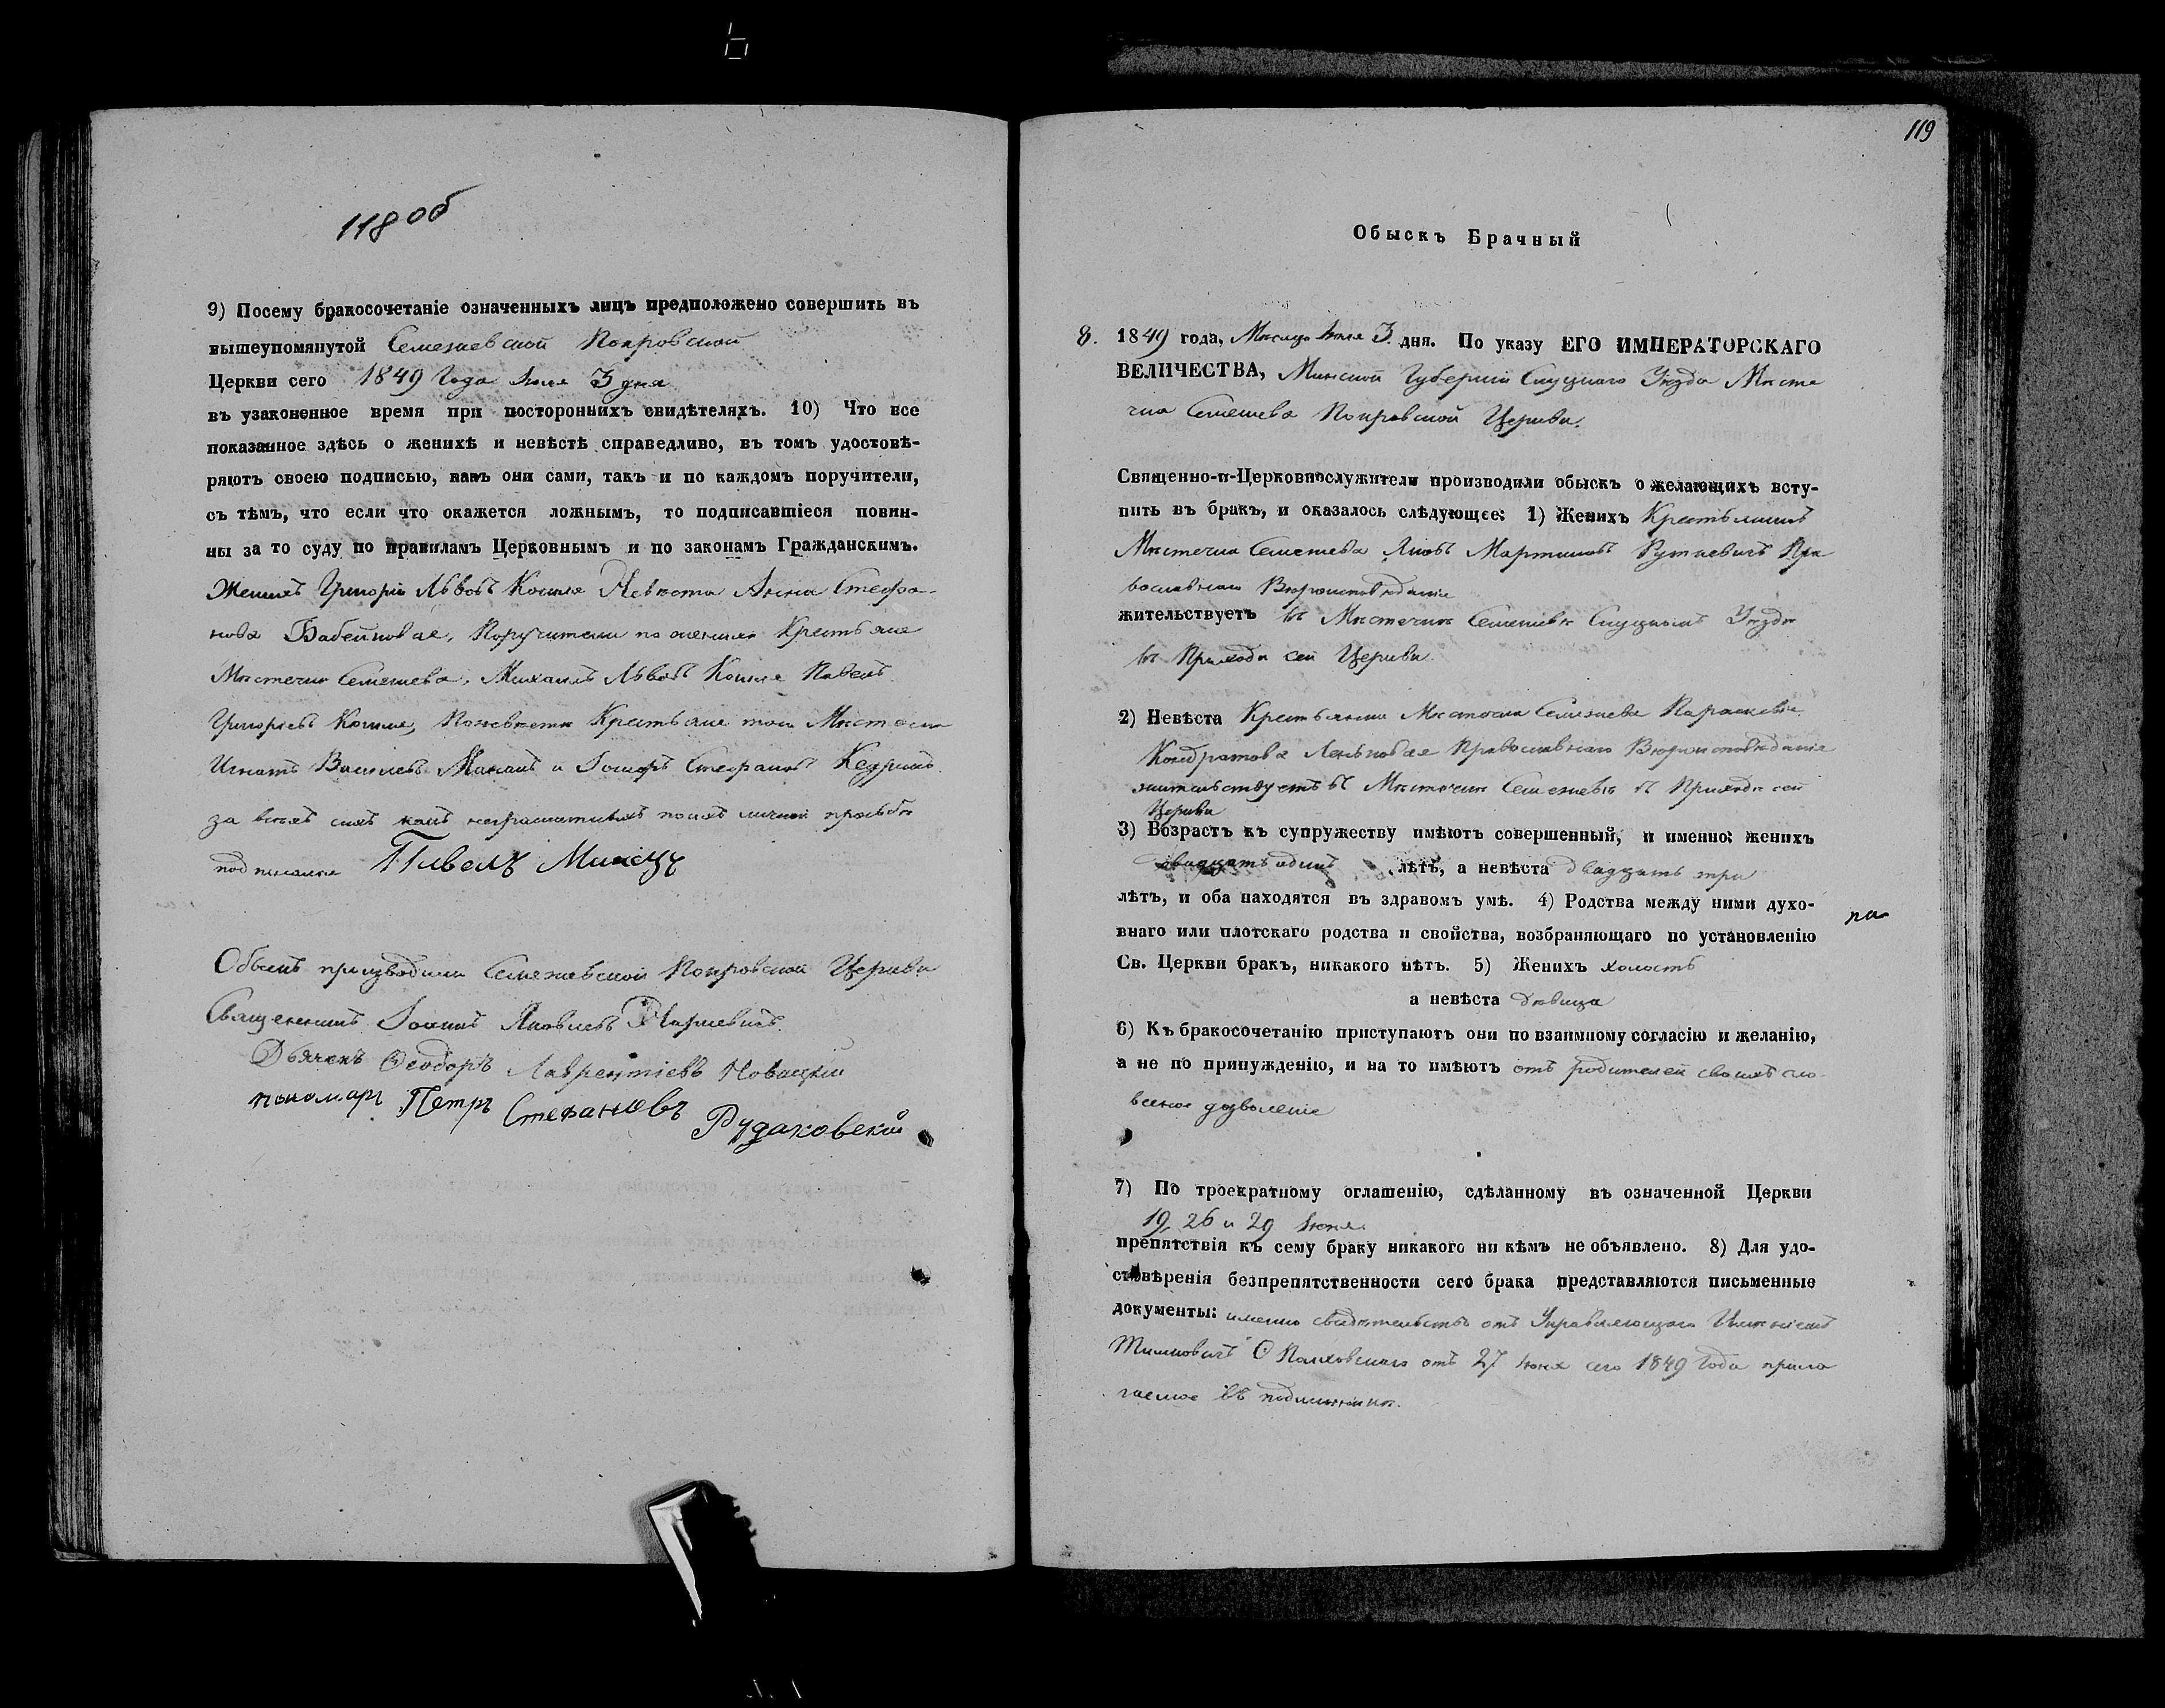 118 об
9) Посему бракосочетаніе означенныхъ лицъ предположено совершить въ
вышеупомянутой Семежевской Покровской
Церкви сего 1849 Года Іюля 3 дня
въ узаконенное время при постороннихъ свидѣтеляхъ. 10) Что все
показанное здѣсь о женихѣ и невѣстѣ справедливо, въ томъ удостовѣ-
ряютъ своею подписью, какъ они сами, такъ и по каждомъ поручители,
съ тѣмъ, что если что окажется ложнымъ, то подписавшіеся повин-
ны за то суду по правиламъ Церковнымъ и по законамъ Гражданскимъ.
Женихъ Григорій Львовъ Невѣста Анна Стефа-
нова Поручители по женихѣ Крестьяне
Мѣстечка Семежева, Михаилъ Львовъ Павелъ
Григорьевъ По невѣстѣ Крестьяне того Мѣстечка
Игнатъ Васильевъ и Іосифъ Стефановъ
за всѣхъ сихъ какъ неграматныхъ по ихъ личной прозьбѣ
подписался Павелъ
Обыскъ призводили Семежевской Покровской Церкви
Священникъ Іоаннъ Яковлевъ
Дьячекъ Ѳеодоръ Лаврентіевъ Новицкій
пономарь Петръ Стефановъ Рудаковскій
119
Обыскъ Брачный
8. 1849 года, Мѣсяца Іюля 3 дня. По указу ЕГО ИМПЕРАТОРСКАГО
ВЕЛИЧЕСТВА, Минской Губерніи Слуцкаго Уѣзда Мѣсте
чка Семежева Покровской Церкви.
Священно-и-Церковнослужители производили обыскъ о желающихъ всту-
пить въ бракъ, и оказалось слѣдующее: 1) Женихъ Крестьянинъ
Мѣстечка Семежева Яковъ Мартиновъ Руткевичъ Пра
вославнаго Вѣроисповѣданія
жительствуетъ въ Мѣстечкѣ Семежевѣ Слуцкомъ Уѣздѣ
въ Приходѣ сей Церкви.
2) Невѣста Крестьянка Мѣстечка Семежева Параскевія
Кондратова Православнаго Вѣроисповѣданія
жительствуетъ въ Мѣстечкѣ Семежевѣ въ Приходѣ сей
Церкви
3) Возрастъ къ супружеству имѣютъ совершенный, и именно: женихъ
двадцать одинъ лѣтъ, а невѣста двадцать три
лѣтъ, и оба находятся въ здравомъ умѣ. 4) Родства между ними духо-
внаго или плотскаго родства и свойства, возбраняющаго по установленію
Св. Церкви бракъ, никакого нѣтъ. 5) Женихъ холостъ
а невѣста дѣвица
6) Къ бракосочетанію приступаютъ они по взаимному согласію и желанію,
а не по принужденію, и на то имѣютъ отъ родителей своихъ сло
весное дозволеніе
7) По троекратному оглашенію, сдѣланному въ означенной Церкви
19, 26 и 29 Іюня.
препятствія къ сему браку никакого ни кѣмъ не объявлено. 8) Для удо-
стовѣренія безпрепятственности сего брака представляются письменные
документы: именно свидѣтельство отъ Управляющаго Имѣніемъ
отъ 27 Іюня сего 1849 Года прила
гаемое въ подлинникѣ.